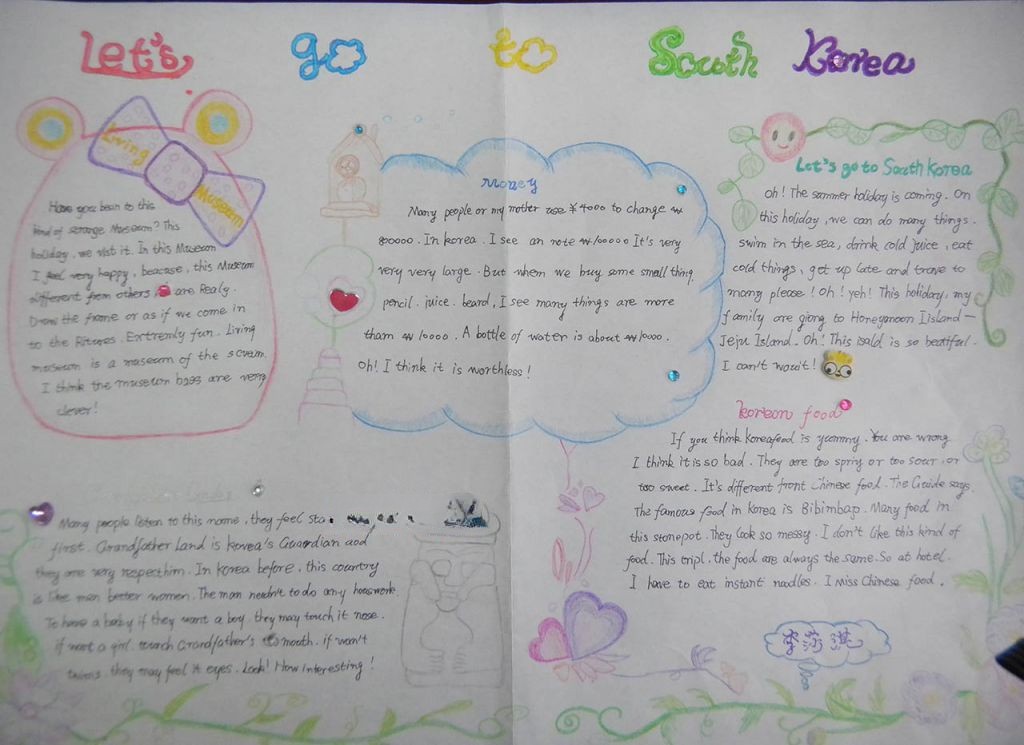 Let's go to South Korea
Living
Museum
Have you been to this
kind of strange Museum? This
holiday, we visit it. In this Museum
I feel very happy, beacuse, this Museum
different from others are Realy.
Drow the frame or as if we come in
to the Pitures. Extremly fun. Living
museum is a museum of the
I think the museum are very
clever!
Money
Many people or my mother use ¥4000 to change ₩
800000. In korea. I see an note ₩10000 It's very
very very large. But when we buy some small thing.
pencil. juice. beard, I see many things are more
than ₩10000. A bottle of water is about ₩1000.
Oh! I think it is worthless!
Let's go to South Korea
Oh! The summer holiday is coming. On
this holiday, we can do many things.
swim in the sea, drink cold juice, eat
cold things, get up late and trave to
many please! Oh! yeh! This holiday, my
family are giong to Honeymoon Iisland—
Jeju Island. Oh! This isald is so beatiful.
I can't wait!
korean food
If you think koreafood is yummy. You are wrong
I think it is so bad. They are too spriy or too sour, or
too sweet. It's different front Chinese food. The Guide says.
The famous food in korea is Bibimbap. Many food in
this stonepot. They look so messy. I don't like this kind of
food. This tripl. the food are always the same. So at hotel.
I have to eat instant noodles. I miss Chinese food.
Many people listen to this name, they feel
first. Grandfather Land is korea's Guardian and
they are very respecthim. In korea before, this country
is like men better women. The man needn't to do any housework.
To have a baby if they want a boy. they may touch it nose.
if want a girl. touch Grandfather's mouth. if won't
twins, they may feel it eyes. Look! How interesting!
李莎淇